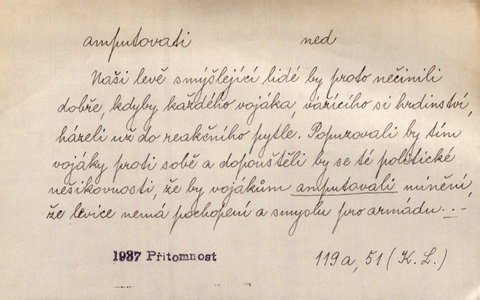 amputovati ned
Naši levě smýšlející lidé by proto nečinili
dobře, kdyby každého vojáka, vážícího si hrdinství,
házeli už do reakčního pytle. Popuzovali by tím
vojáky proti sobě a dopouštěli by se té politické
nešikovnosti, že by vojákům amputovali mínění,
že levice nemá pochopení a smyslu pro armádu...-
1937 Přítomnost 119a, 51 (K. L.)